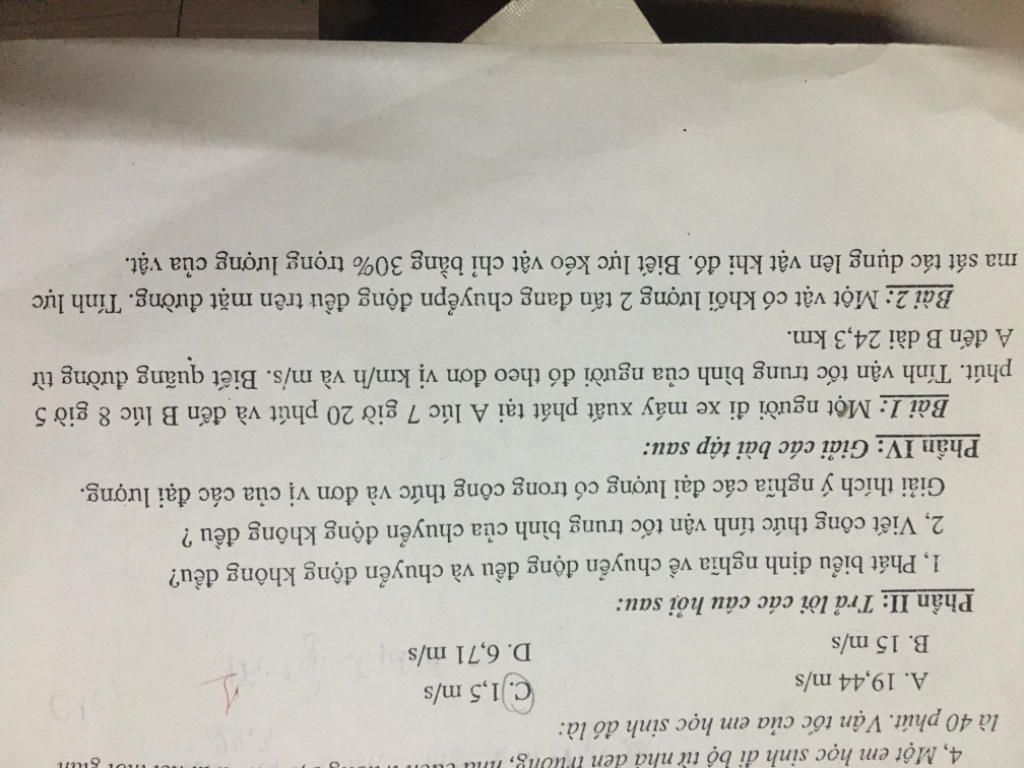 4, Một em học sinh đi bộ từ nhà đến trường, nhà cách
là 40 phút. Vận tốc của em học sinh đó là:
A. 19,44 m/s C. 1,5 m/s
B. 15 m/s D. 6,71 m/s
Phần II: Trả lời các câu hỏi sau:
1, Phát biểu định nghĩa về chuyển động đều và chuyển động không đều?
2, Viết công thức tính vận tốc trung bình của chuyển động không đều ?
Giải thích ý nghĩa các đại lượng có trong công thức và đơn vị của các đại lượng.
Phần IV: Giải các bài tập sau:
Bài 1: Một người đi xe máy xuất phát tại A lúc 7 giờ 20 phút và đến B lúc 8 giờ 5
phút. Tính vận tốc trung bình của người đó theo đơn vị km/h và m/s. Biết quãng đường từ
A đến B dài 24,3 km.
Bài 2: Một vật có khối lượng 2 tấn đang chuyểpn động đều trên mặt đường. Tính lực
ma sát tác dụng lên vật khi đó. Biết lực kéo vật chỉ bằng 30% trọng lượng của vật.